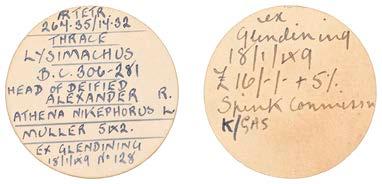 AR TETR
264.35/14.32
THRACE
LYSIMACHUS
B.C. 306-281
HEAD OF DEIFIED
ALEXANDER R.
ATHENA NIKEPHORUS L
MULLER 512.
EX GLENDINING
18/1/1X9 No 128
ex
Glendining
18/1/1X9
£ 16/-/- + 5%
Spink Commissn
K/GAS